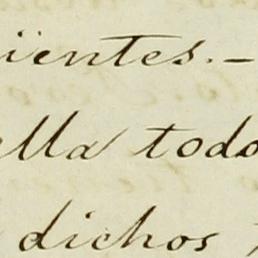 üentes.—
ella todo
dichos